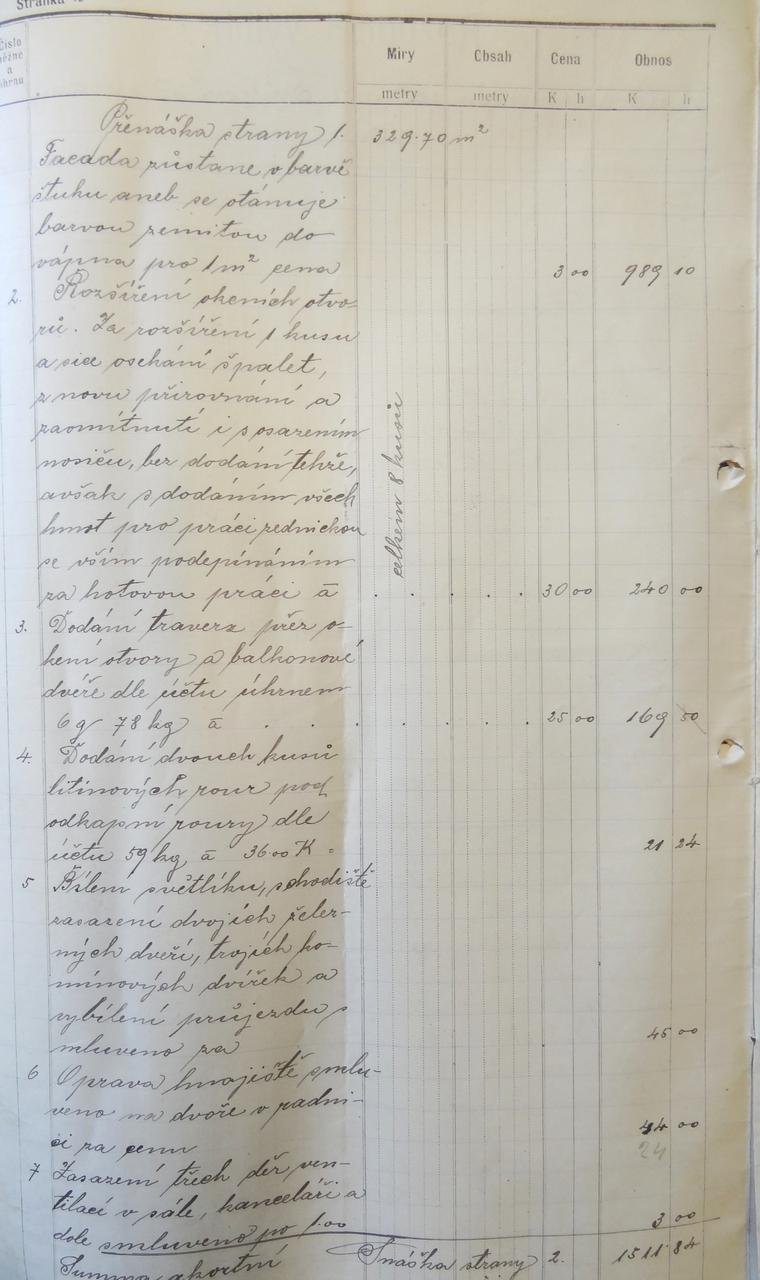 Stránka
Číslo
běžné
a
úhrnu
Míry
Obsah
Cena
Obnos
metry
metry
K h
K h
Přenáška strany 1. 329.70 m²
Facada zůstane v barvě
štuku aneb se otónuje
barvou zemitou do
vápna pro 1 m² cena 3 00 989 10
2. Rozšíření okeních otvo-
rů. Za rozšíření 1 kusu
a sice osekání špalet,
znovu přirovnání a
zaomítnutí i s osazením
nosičů, bez dodání těhže,
avšak s dodáním všech
hmot pro práci zednickou
se vším podepínáním
za hotovou práci à . . . . . 30 00 240 00
celkem 8 kusů
3. Dodání traverz přez o-
kení otvory a balkonové
dvéře dle účtu úhrnem
6 q 78 kg à . . . . . . . 25 00 169 50
4. Dodání dvouch kusů
litinových rour pod
odkapní roury dle
účtu 59 kg à 36.00 K = 21 24
5 Bílem světlíku, schodiště
zasazení dvojích želez-
ných dveří, trojích ko-
mínových dvířek a
vybílení průjezdu s
mluveno za 45 00
6 Oprava hnojiště smlu-
veno na dvoře v radni-
ci za cenu 44 00
24
7 Zasazení třech děr ven-
tilací v sále, kanceláři a
dole smluveno po 1.00 3 00
Snáška strany 2. 1511 84
Summa akortní